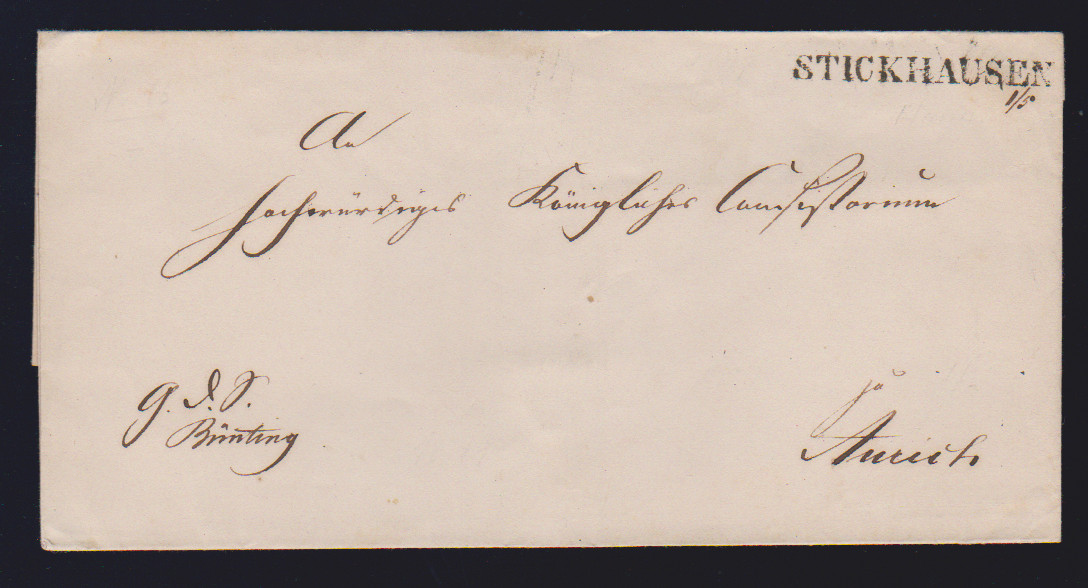 STICKHAUSEN
1/5
An
Hochwürdiges Königliches Consistorium
zu
Aurich
g. d. S.
Bünting